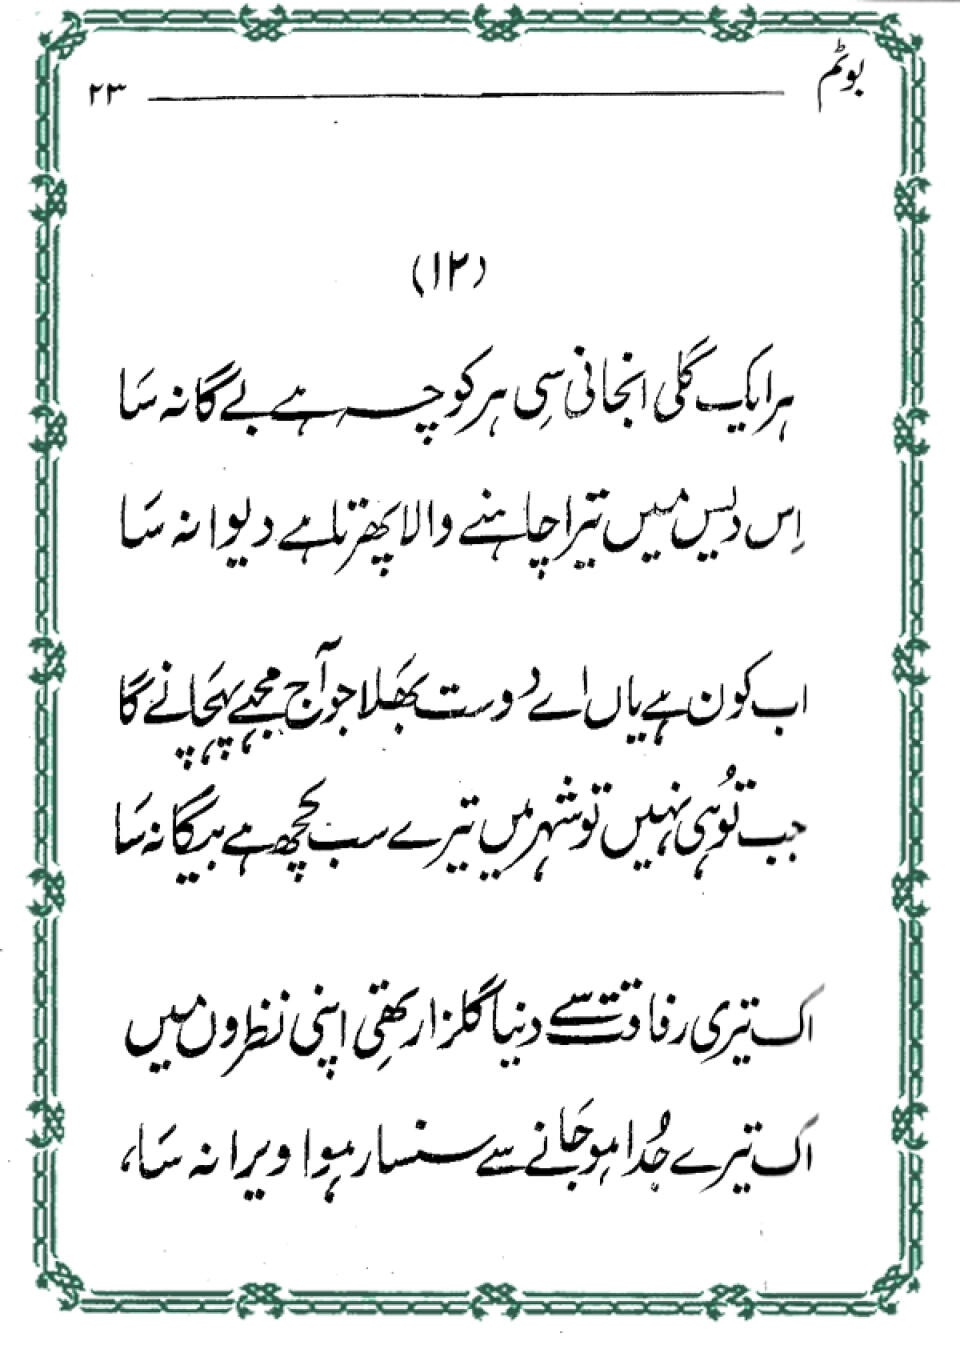 بوٹم ۲۳
(۱۲)
ہر ایک گلی انجانی سی ہر کوچہ ہے بے گانہ سَا
اِس دیس میں تیرا چاہنے والا پھرتا ہے دیوانہ سَا
اب کون ہے یاں اے دوست بھَلا جو آج مجھے پہچانے گا
جب تُو ہی نہیں تو شہر میں تیرے سب کچھ ہے بیگانہ سَا
اک تیری رفاقت سے دنیا گلزار تھی اپنی نظروں میں
اک تیرے جُدا ہو جَانے سے سنسار ہوا ویرانہ سَا،